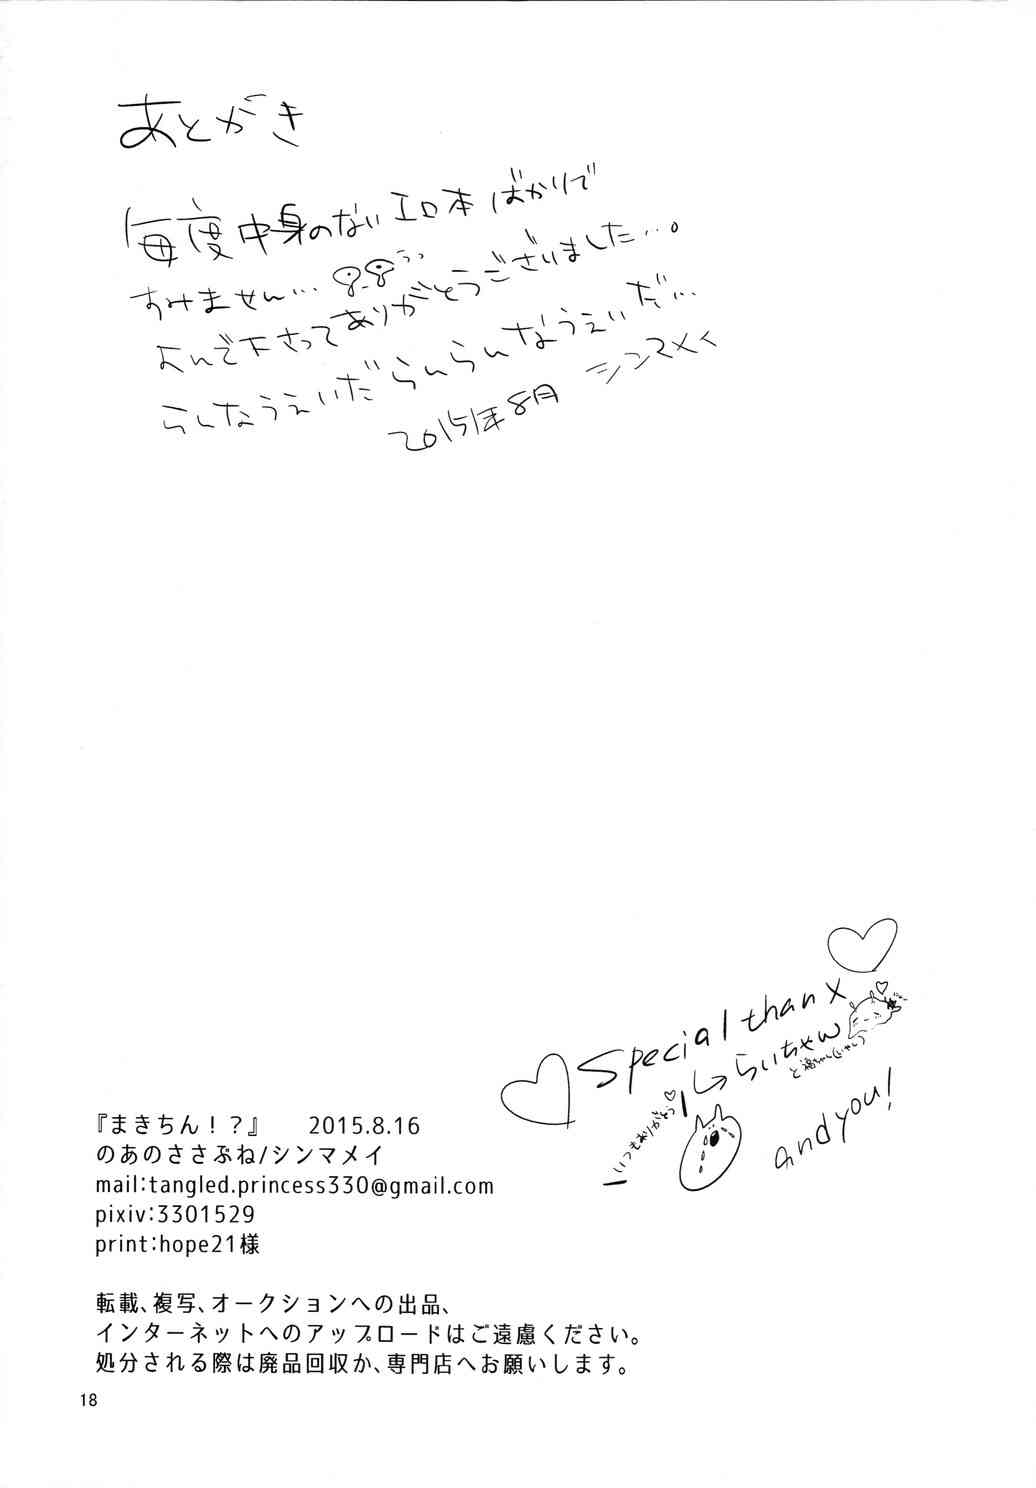 あとがき
毎度中身のないエロ本ばかりで
すみません…
よんで下さってありがとうございました…。
らんなうぇいだらんらんなうぇいだ…
2015年8月 シンマメイ
Special thanx
→らいちゃん
いつもありがとう
and you!
『まきちん！？』 2015.8.16
のあのささぶね/シンマメイ
mail:tangled.princess330@gmail.com
pixiv:3301529
print:hope21様
転載、複写、オークションへの出品、
インターネットへのアップロードはご遠慮ください。
処分される際は廃品回収か、専門店へお願いします。
18